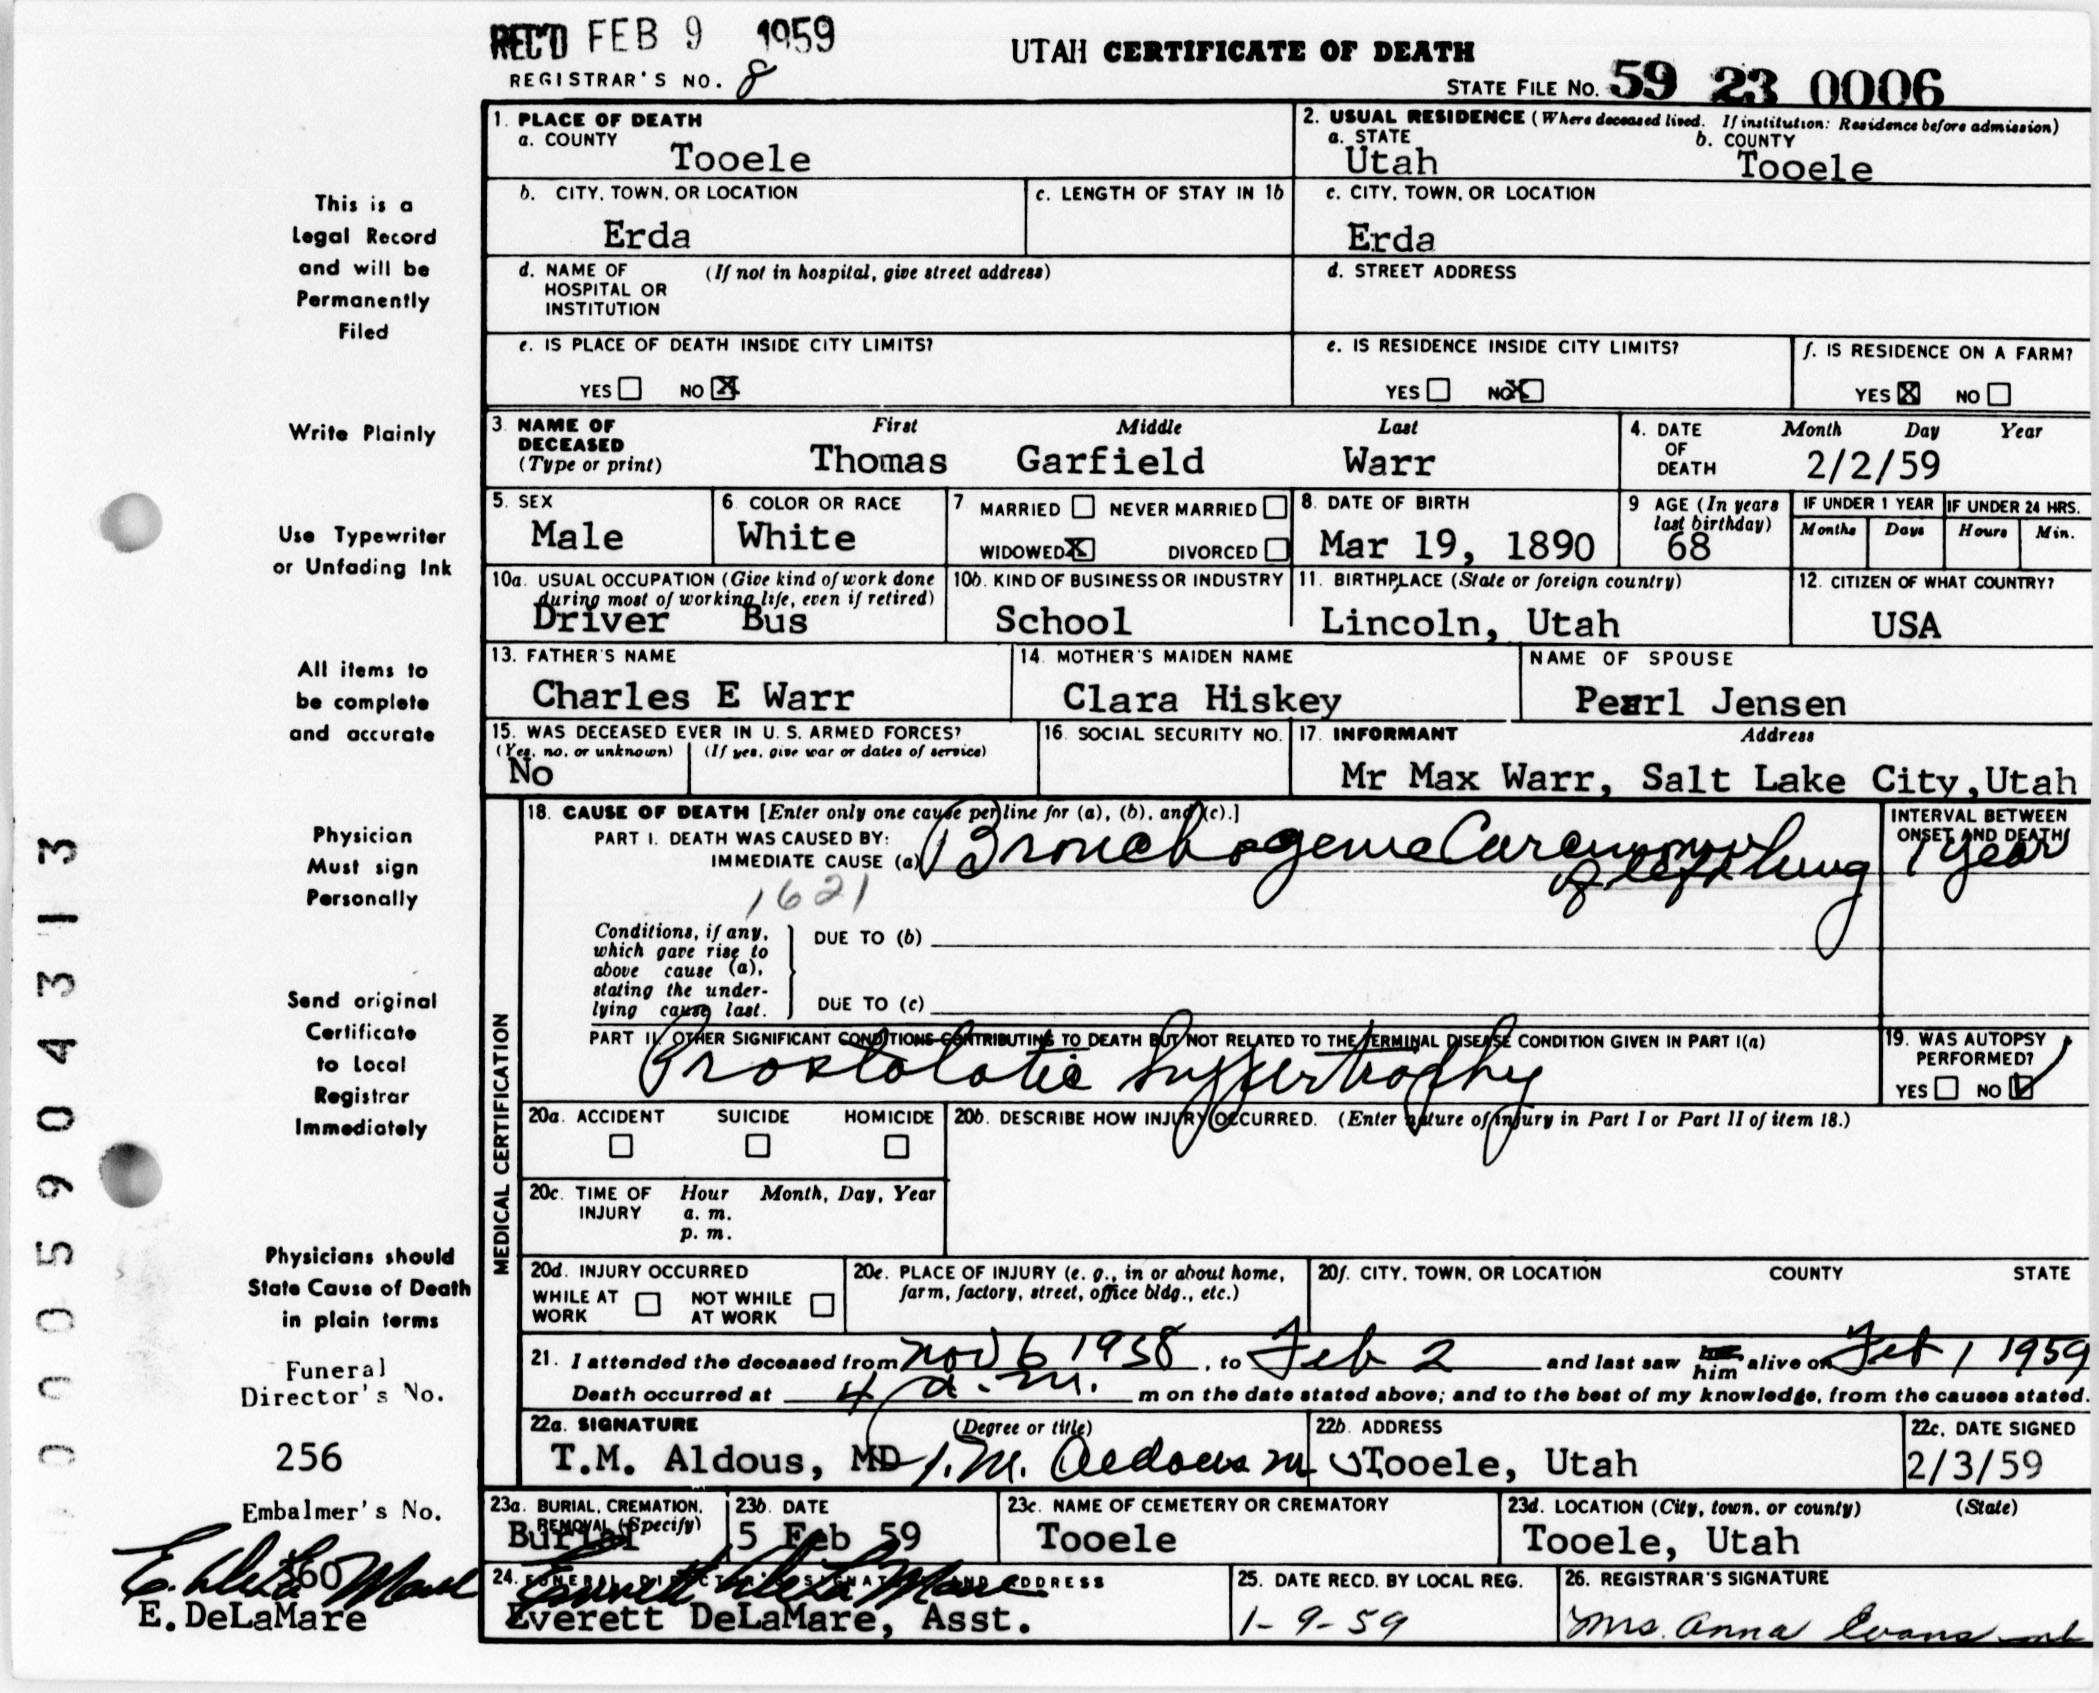 REC'D FEB 9 1959
UTAH CERTIFICATE OF DEATH
REGISTRAR'S NO. 8
STATE FILE NO. 59 23 0006
1. PLACE OF DEATH
a. COUNTY
Tooele
2. USUAL RESIDENCE (Where deceased lived. If institution: Residence before admission)
a. STATE
Utah
b. COUNTY
Tooele
b. CITY, TOWN, OR LOCATION
Erda
c. LENGTH OF STAY IN 1b
c. CITY, TOWN, OR LOCATION
Erda
d. NAME OF HOSPITAL OR INSTITUTION
(If not in hospital, give street address)
d. STREET ADDRESS
e. IS PLACE OF DEATH INSIDE CITY LIMITS?
YES NO X
e. IS RESIDENCE INSIDE CITY LIMITS?
YES NO X
f. IS RESIDENCE ON A FARM?
YES X NO
3. NAME OF DECEASED
(Type or print)
First Middle Last
Thomas Garfield Warr
4. DATE OF DEATH
Month Day Year
2/2/59
5. SEX
Male
6. COLOR OR RACE
White
7 MARRIED NEVER MARRIED
WIDOWED X DIVORCED
8. DATE OF BIRTH
Mar 19, 1890
9 AGE (In years last birthday)
68
IF UNDER 1 YEAR
Months Days
IF UNDER 24 HRS.
Hours Min.
10a. USUAL OCCUPATION (Give kind of work done during most of working life, even if retired)
Driver Bus
10b. KIND OF BUSINESS OR INDUSTRY
School
11. BIRTHPLACE (State or foreign country)
Lincoln, Utah
12. CITIZEN OF WHAT COUNTRY?
USA
13. FATHER'S NAME
Charles E Warr
14. MOTHER'S MAIDEN NAME
Clara Hiskey
NAME OF SPOUSE
Pearl Jensen
15. WAS DECEASED EVER IN U. S. ARMED FORCES?
(Yes, no, or unknown) (If yes, give war or dates of service)
No
16. SOCIAL SECURITY NO.
17. INFORMANT Address
Mr Max Warr, Salt Lake City, Utah
MEDICAL CERTIFICATION
18. CAUSE OF DEATH [Enter only one cause per line for (a), (b), and (c).]
PART I. DEATH WAS CAUSED BY:
IMMEDIATE CAUSE (a) Bronchogenic Carcinoma
of left lung
1621
INTERVAL BETWEEN ONSET AND DEATH
1 year
Conditions, if any, which gave rise to above cause (a), stating the underlying cause last.
DUE TO (b)
DUE TO (c)
PART II. OTHER SIGNIFICANT CONDITIONS CONTRIBUTING TO DEATH BUT NOT RELATED TO THE TERMINAL DISEASE CONDITION GIVEN IN PART I(a)
Prostatic hypertrophy
19. WAS AUTOPSY PERFORMED?
YES NO
20a. ACCIDENT SUICIDE HOMICIDE
20b. DESCRIBE HOW INJURY OCCURRED. (Enter nature of injury in Part I or Part II of item 18.)
20c. TIME OF INJURY
Hour Month, Day, Year
a. m.
p. m.
20d. INJURY OCCURRED
WHILE AT WORK NOT WHILE AT WORK
20e. PLACE OF INJURY (e. g., in or about home, farm, factory, street, office bldg., etc.)
20f. CITY, TOWN, OR LOCATION COUNTY STATE
21. I attended the deceased from Nov 6 1958, to Feb 2 and last saw him alive on Feb 1 1959
Death occurred at 4 a.m. m on the date stated above; and to the best of my knowledge, from the causes stated.
22a. SIGNATURE (Degree or title)
T.M. Aldous, MD T. M. Aldous M
22b. ADDRESS
Tooele, Utah
22c. DATE SIGNED
2/3/59
23a. BURIAL, CREMATION, REMOVAL (Specify)
Burial
23b. DATE
5 Feb 59
23c. NAME OF CEMETERY OR CREMATORY
Tooele
23d. LOCATION (City, town, or county) (State)
Tooele, Utah
24. FUNERAL DIRECTOR'S SIGNATURE AND ADDRESS
Everett DeLaMare
Everett DeLaMare, Asst.
25. DATE RECD. BY LOCAL REG.
1-9-59
26. REGISTRAR'S SIGNATURE
Mrs. Anna Evans
This is a
Legal Record
and will be
Permanently
Filed
Write Plainly
Use Typewriter
or Unfading Ink
All items to
be complete
and accurate
Physician
Must sign
Personally
Send original
Certificate
to Local
Registrar
Immediately
Physicians should
State Cause of Death
in plain terms
Funeral
Director's No.
256
Embalmer's No.
360
E. DeLaMare
E. DeLaMare
0005904313